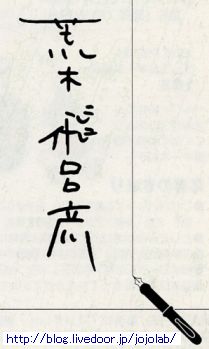 荒木飛呂彦
http://blog.livedoor.jp/jojolab/